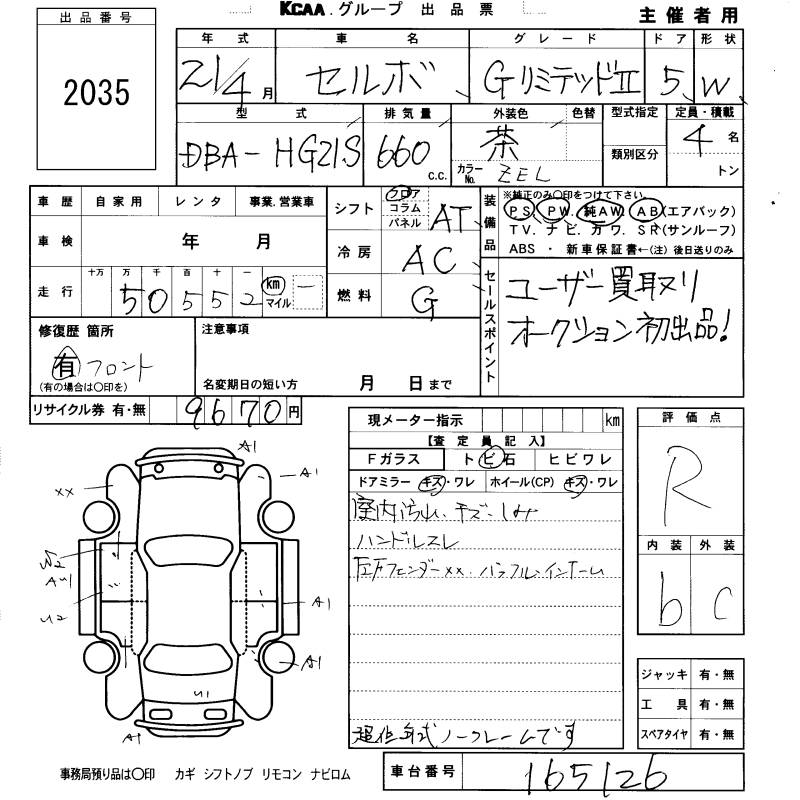 KCAA.グループ 出品票
主催者用
出品番号
2035
年式 車名 グレード ドア 形状
21/4月 セルボ GリミテッドII 5 W
型式 排気量 外装色 色替 型式指定 定員・積載
DBA-HG21S 660c.c. 茶 類別区分 4名
カラーNo. ZEL トン
車歴 自家用 レンタ 事業.営業車
車検 年 月
十万 万 千 百 十 一
走行 50552 km マイル —
シフト フロア コラム パネル AT
冷房 AC
燃料 G
装備品
※純正のみ○印をつけて下さい。
PS. PW. 純AW. AB(エアバック)
TV. ナビ. カワ. SR(サンルーフ)
ABS ・ 新車保証書←(注)後日送りのみ
セールスポイント
ユーザー買取り
オークション初出品!
修復歴 箇所
有 フロント
(有の場合は○印を)
注意事項
名変期日の短い方 月 日まで
リサイクル券 有・無 9670円
現メーター指示 km
【査定員記入】
Fガラス トビ石 ヒビワレ
ドアミラー キズ・ワレ ホイール(CP) キズ・ワレ
室内汚れ・キズ・しみ
ハンドルスレ
左Fフェンダーxx.
超低年式 ノークレームです
評価点
R
内装 外装
b C
ジャッキ 有・無
工具 有・無
スペアタイヤ 有・無
A1
A1
xx
A1
U2
A1
A1
U1
A1
事務局預り品は○印 カギ シフトノブ リモコン ナビロム
車台番号 165126